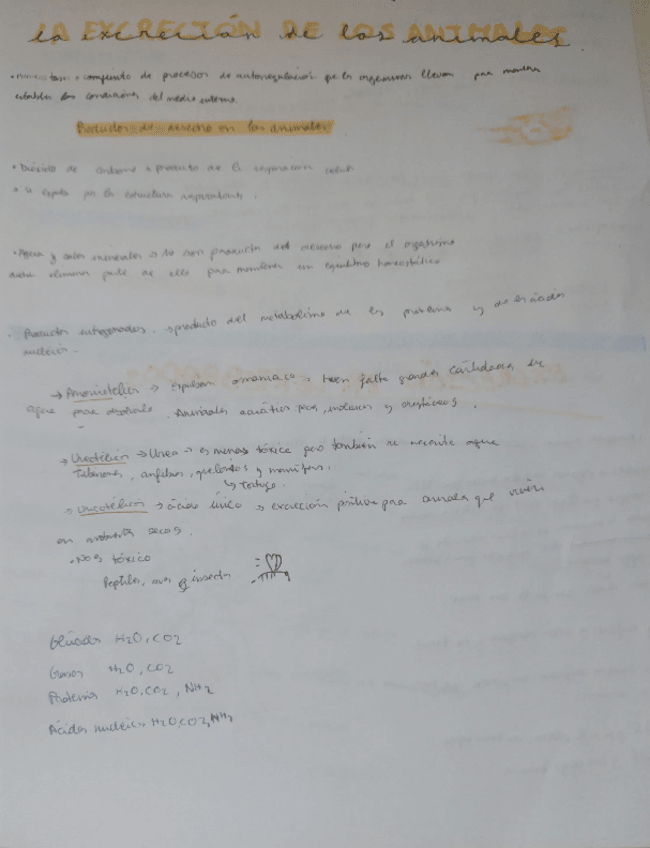 LA EXCRECIÓN DE LOS ANIMALES
la excreción de los animales
conjunto de procesos de autorregulación que los organismos llevan para mantener
estables las condiciones del medio interno.
Productos de desecho en los animales
• Dióxido de carbono → producto de la respiración celular
• Se expulsa por la estructura respiratoria.
• Agua y sales minerales → no son producto del desecho pero el organismo
debe eliminar parte de ello para mantener un equilibrio homeostático
• Productos nitrogenados → producto del metabolismo de las proteínas y de los ácidos
nucleicos.
→ Amoniotélicos → expulsan amoniaco → hacen falta grandes cantidades de
agua para disolverlo. Animales acuáticos peces, moluscos y crustáceos.
→ Ureotélicos → Urea → es menos tóxica pero también se necesita agua
Tiburones, anfibios, quelonios y mamíferos.
↳ Tortuga
→ Uricotélicos → ácido úrico → excreción para animales que viven
en ambientes secos.
• No es tóxico
Reptiles, aves e insectos
Glúcidos H2O, CO2
Grasas H2O, CO2
Proteínas H2O, CO2, NH2
Ácidos nucleicos H2O, CO2, NH2